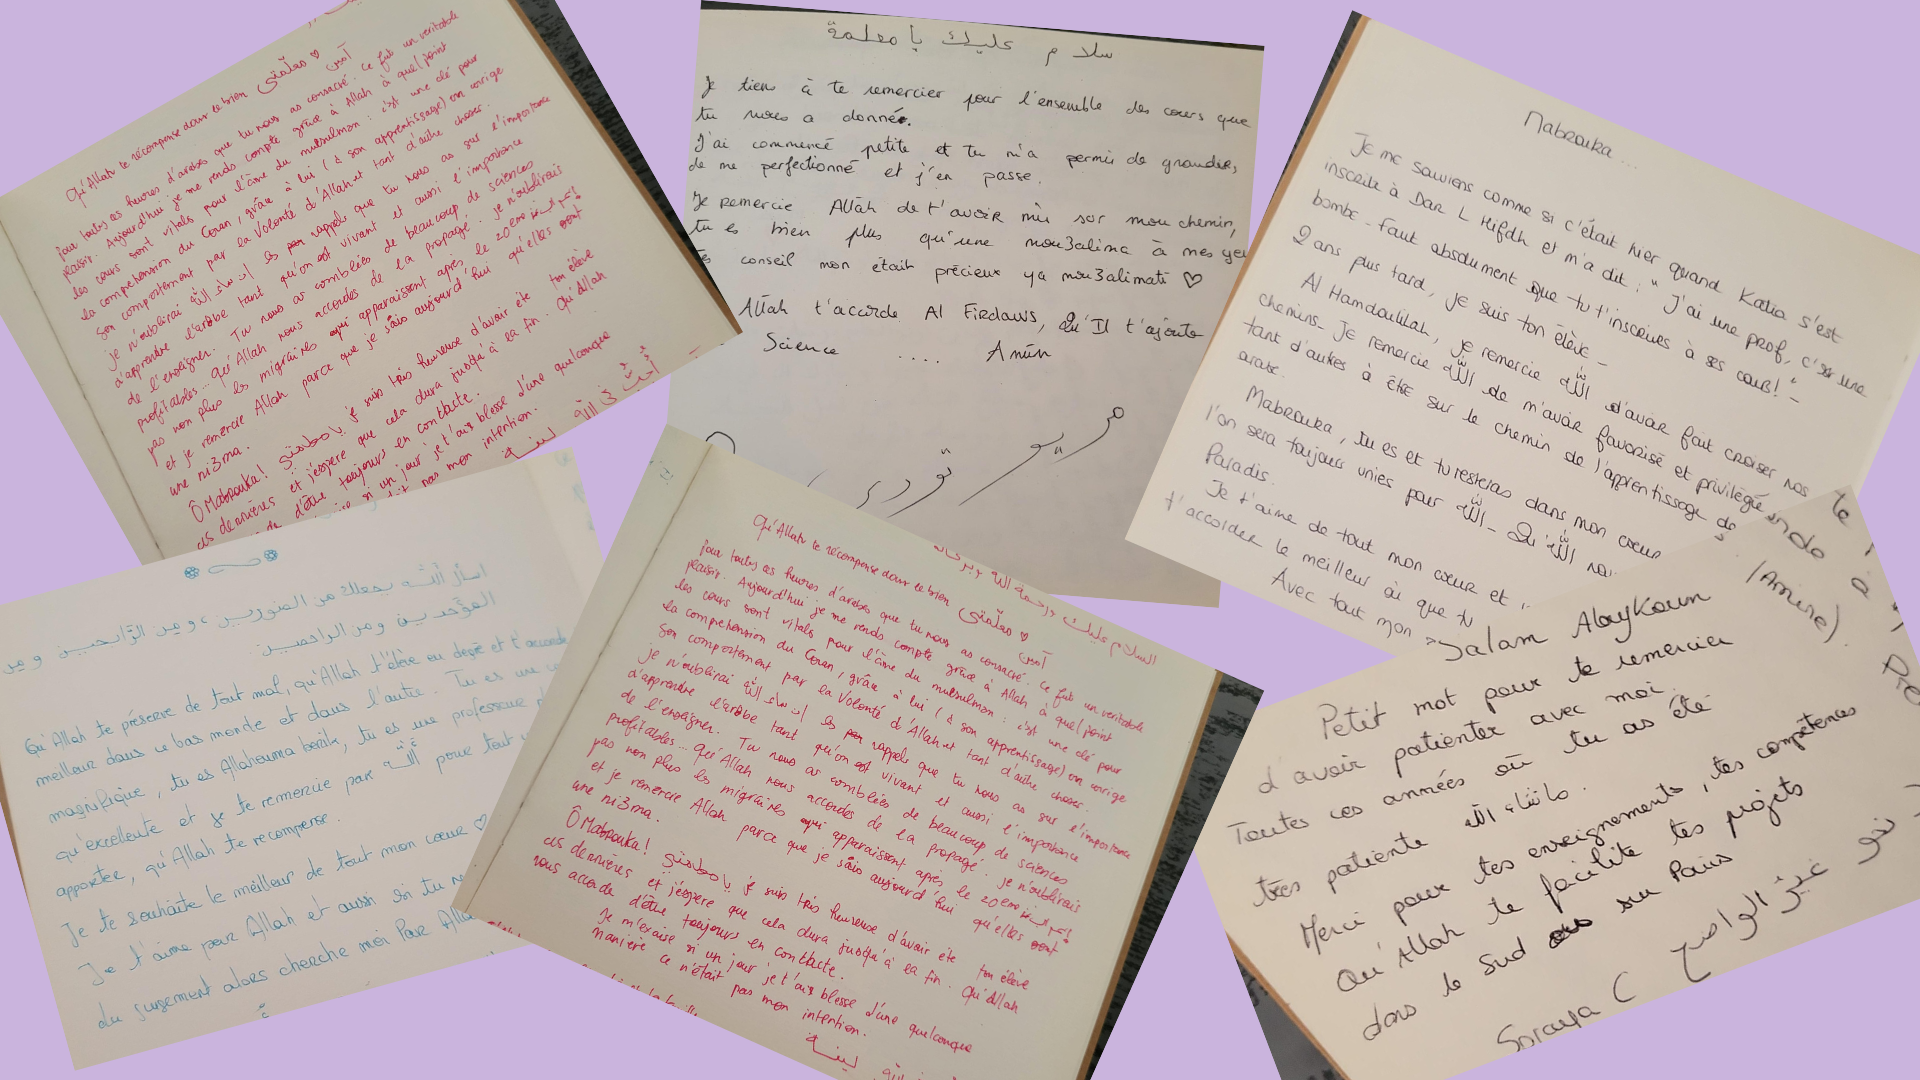 Qu'Allah te récompense dans ce bien معلمتي ♡
pour toutes ces heures d'arabes que tu nous as consacré. آمين Ce fut un veritable
plaisir. Aujourd'hui je me rends compte grâce à Allah à quel point
les cours sont vitals pour l'âme du mulsulman : c'est une clé pour
la compréhension du Coran, grâce à lui (à son apprentissage) on corrige
son comportement par la Volonté d'Allah et tant d'autre choses.
je n'oublirai إن شاء الله les rappels que tu nous as sur l'importance
d'apprendre l'arabe tant qu'on est vivant et aussi l'importance
de l'enseigner. Tu nous as comblées de beaucoup de sciences
profitables... Qu'Allah nous accordes de la propagé. je n'oublirais
pas non plus les migraines qui apparaissent après le 20ème
et je remercie Allah parce que je sais aujourd'hui qu'elles sont
une ni3ma.
Ô Mabrouka! يا معلمتي je suis très heureuse d'avoir été ton élève
ces dernières et j'éspère que cela dura jusqu'à la fin. Qu'Allah
d'être toujours en contacte.
si un jour je t'ai blessé d'une quelconque
pas mon intention.
أحبك في الله
لينة
سلام عليك يا معلمة
Je tiens à te remercier pour l'ensemble des cours que
tu nous a donnée.
J'ai commencé petite et tu m'a permis de grandir,
de me perfectionné et j'en passe.
Je remercie Allāh de t'avoir mis sur mon chemin,
tu es bien plus qu'une mou3alima à mes yeu
conseil mon était précieux ya mou3alimati ♡
Allah t'accorde Al Firdaws, Qu'Il t'ajoute
Science .... Amīn
Mabrouka ...
Je me souviens comme si c'était hier quand Katia s'est
inscrite à Dar L Hifdh et m'a dit : "J'ai une prof, c'est une
bombe - faut absolument que tu t'inscrives à ses cours!" -
2 ans plus tard, je suis ton élève -
Al Hamdoulilah, je remercie الله d'avoir fait croiser nos
chemins - Je remercie الله de m'avoir favorisé et privilégié
tant d'autres à être sur le chemin de l'apprentissage de
arabe.
Mabrouka, tu es et tu resteras dans mon coeur
l'on sera toujours unies pour الله - Qu'الله
Paradis.
Je t'aime de tout mon coeur et
t'accorder le meilleur où que tu
Avec tout mon
أسأل الله يجعلك من الصبورين، ومن الرابحين ومن
الموحدين ومن الراحمين
Qu'Allah te préserve de tout mal, qu'Allah t'élève en degré et t'accorde
meilleur dans ce bas monde et dans l'autre. Tu es une
magnifique, tu es Allahouma barik, tu es une professeur
qu'excellente et je te remercie par الله pour tout
apporter, qu'Allah te recompense.
Je te souhaite le meilleur de tout mon coeur ♡
Je t'aime pour Allah et aussi si tu
du jugement alors cherche moi Par Allah
السلام عليك ورحمة الله وبركاته
Qu'Allah te récompense dans ce bien معلمتي ♡
pour toutes ces heures d'arabes que tu nous as consacré. آمين Ce fut un veritable
plaisir. Aujourd'hui je me rends compte grâce à Allah à quel point
les cours sont vitals pour l'âme du mulsulman : c'est une clé pour
la compréhension du Coran, grâce à lui (à son apprentissage) on corrige
son comportement par la Volonté d'Allah et tant d'autre choses.
je n'oublirai إن شاء الله les rappels que tu nous as sur l'importance
d'apprendre l'arabe tant qu'on est vivant et aussi l'importance
de l'enseigner. Tu nous as comblées de beaucoup de sciences
profitables... Qu'Allah nous accordes de la propagé. je n'oublirais
pas non plus les migraines qui apparaissent après le 20ème
et je remercie Allah parce que je sais aujourd'hui qu'elles sont
une ni3ma.
Ô Mabrouka! يا معلمتي je suis très heureuse d'avoir été ton élève
ces dernières et j'éspère que cela dura jusqu'à la fin. Qu'Allah
nous accorde d'être toujours en contacte.
Je m'excuse si un jour je t'ai blessé d'une quelconque
manière ce n'était pas mon intention.
لينة
(Amine).
Salam Alaykoum
Petit mot pour te remercier
d'avoir patienter avec moi.
Toutes ces années où tu as été
très patiente ماشاء الله.
Merci pour tes enseignements, tes compétences
Qu'Allah te facilite tes projets
dans le sud ou sur Paris
Soraya C
نحو غير الواضح